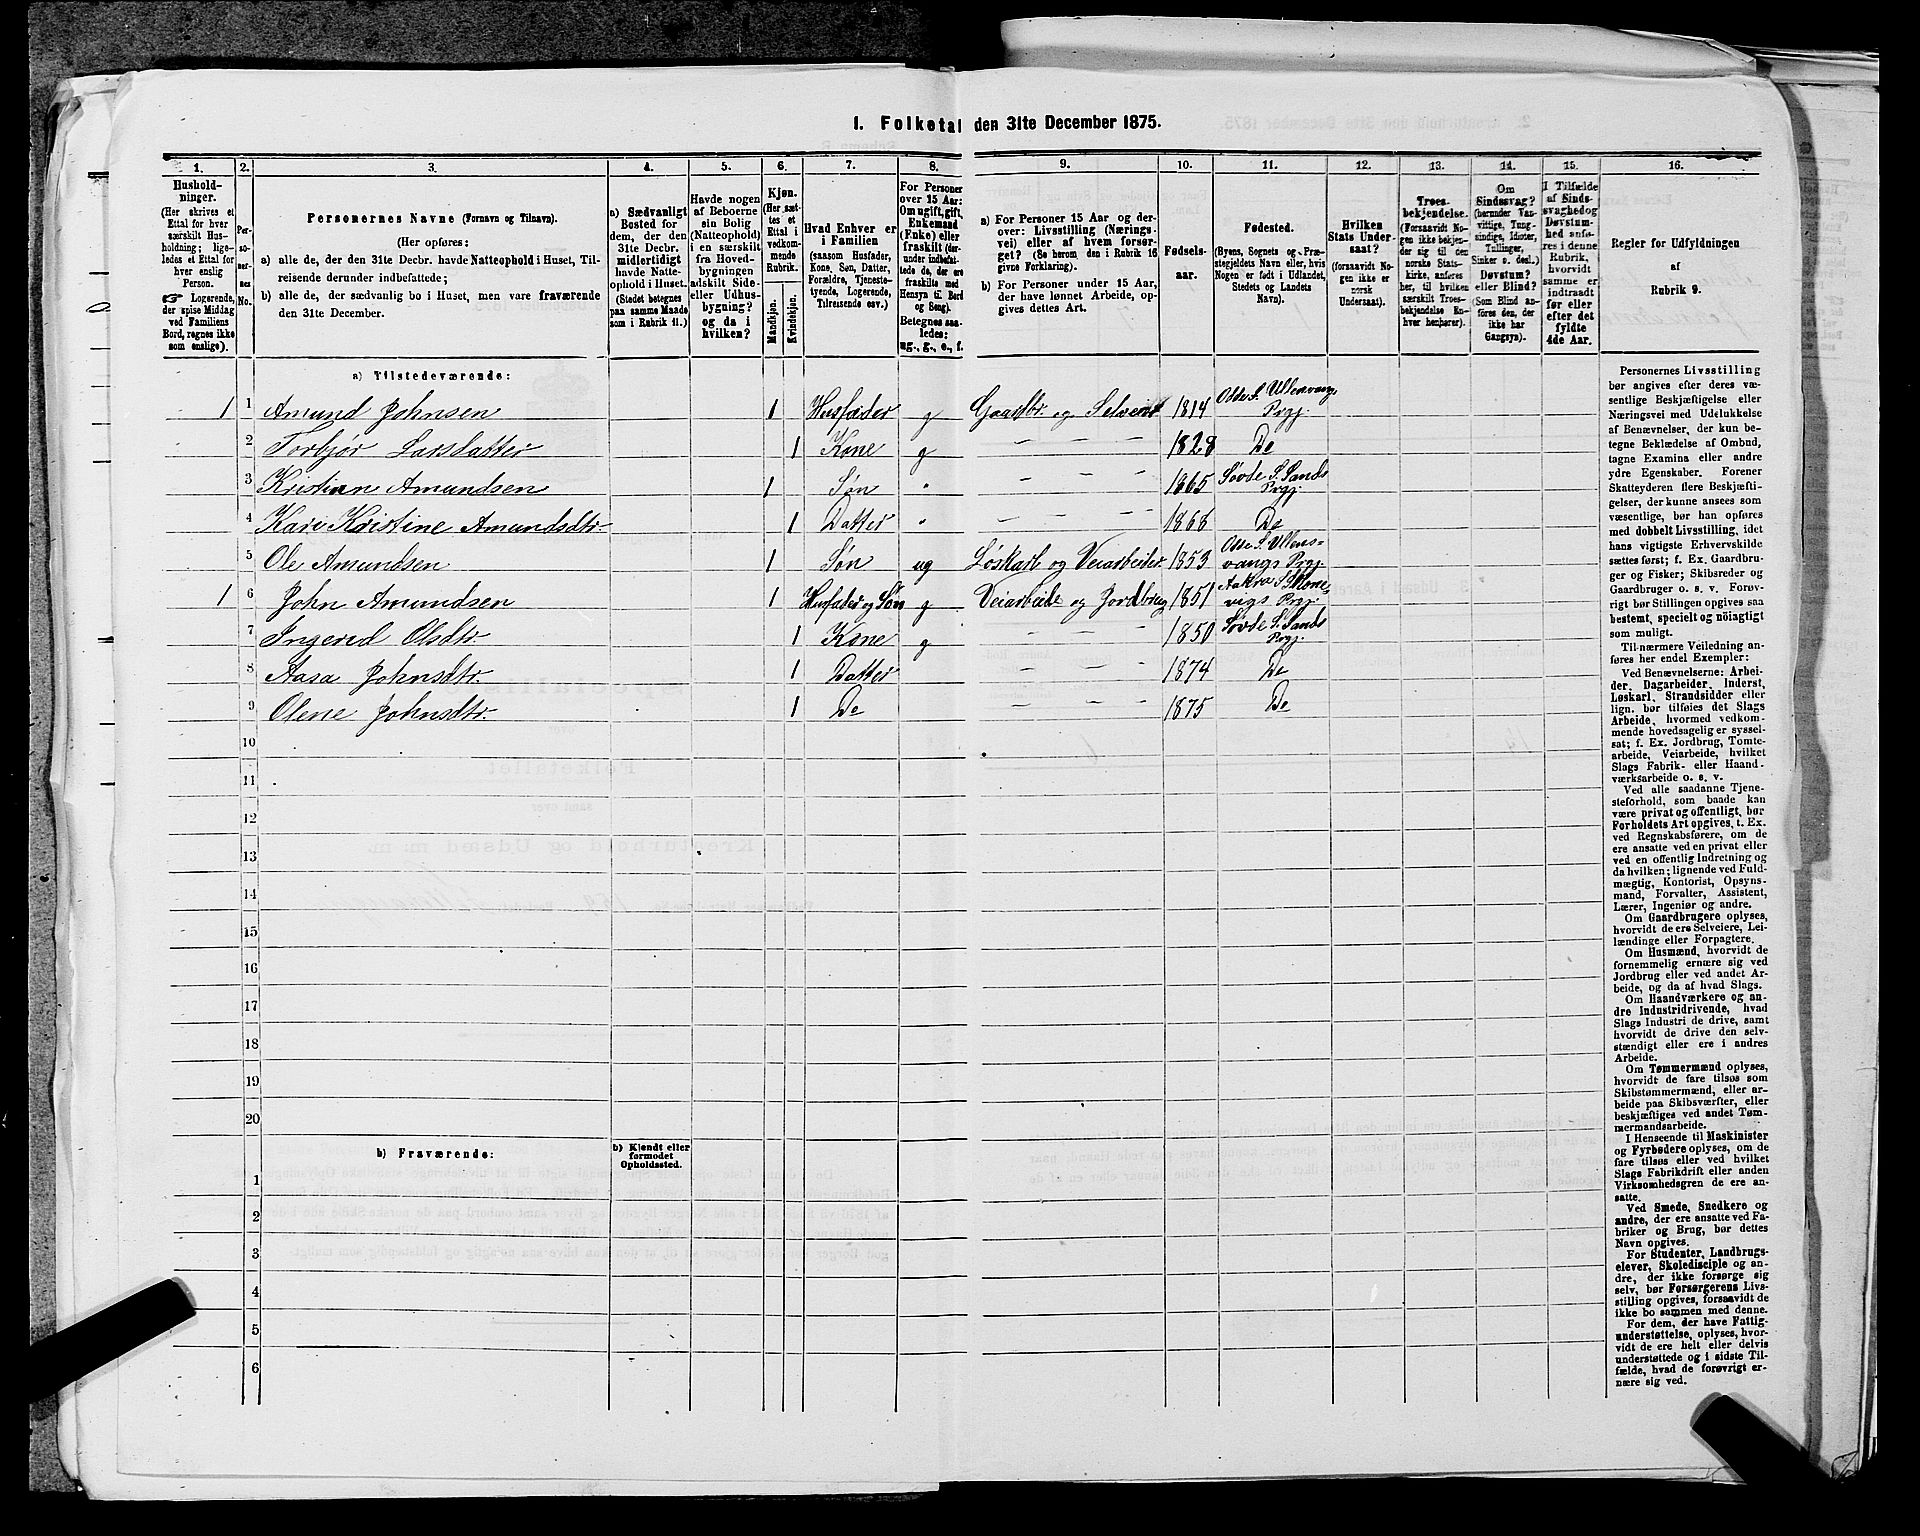 I. Folketal den 31te December 1875.
1. 2. 3. 4. 5. 6. 7. 8. 9. 10. 11. 12. 13. 14. 15. 16.
Hushold-
ninger.
(Her skrives et
Ettal for hver
særskilt Hus-
holdning; lige-
ledes et Ettal for
hver enslig
Person.
☞ Logerende,
der spise Middag
ved Familiens
Bord, regnes ikke
som enslige).
Per-
so-
ner-
nes
No.
Personernes Navne (Fornavn og Tilnavn).
(Her opføres:
a) alle de, der den 31te Decbr. havde Natteophold i Huset, Til-
reisende derunder indbefattede;
b) alle de, der sædvanlig bo i Huset, men vare fraværende
den 31te December.
a) Sædvanligt
Bosted for
dem, der den
31te Decbr.
midlertidigt
havde Natte-
ophold i Huset.
(Stedet betegnes
paa samme Maade
som i Rubrik 11.)
Havde nogen
af Beboerne
sin Bolig
(Natteophold)
i en særskilt
fra Hoved-
bygningen
adskilt Side-
eller Udhus-
bygning?
og da i
hvilken?
Kjøn.
(Her sæt-
tes et
Ettal i
vedkom-
mende
Rubrik.)
Mandkjøn.
Kvindekjøn.
Hvad Enhver er
i Familien
(saasom Husfader,
Kone, Søn, Datter,
Forældre, Tjeneste-
tyende, Logerende,
Tilreisende osv.)
For Personer
over 15 Aar:
Om ugift, gift,
Enkemand
(Enke) eller
fraskilt (der-
under indbefat-
tede de, der ere
fraskilte med
Hensyn til Bord
og Seng).
Betegnes saa-
ledes:
ug., g., e., f.
a) For Personer 15 Aar og der-
over: Livsstilling (Nærings-
vei) eller af hvem forsør-
get? (Se herom den i Rubrik 16
givne Forklaring).
b) For Personer under 15 Aar,
der have lønnet Arbeide, op-
gives dettes Art.
Fødsels-
aar.
Fødested.
(Byens, Sognets og Præ-
stegjeldets Navn eller, hvis
Nogen er født i Udlandet,
Stedets og Landets
Navn).
Hvilken
Stats Under-
saat?
(forsaavidt No-
gen ikke er
norsk
Undersaat).
Troes-
bekjendelse.
(Forsaavidt No-
gen ikke bekjen-
der sig til den
norske Stats-
kirke, anføres
her, til hvilken
særskilt Troes-
bekjendelse En-
hver henhører).
Om
Sindssvag?
(herunder Van-
vittige, Tung-
sindige, Idioter,
Tullinger,
Sinker o. desl.)
Døvstum?
eller Blind?
(Som Blind an-
føres den, der
ikke har
Gangsyn).
I Tilfælde
af Sinds-
svaghed og
Døvstum-
hed anfø-
res i denne
Rubrik,
hvorvidt
samme er
indtraadt
før eller
efter det
fyldte
4de Aar.
Regler for Udfyldningen
af
Rubrik 9.
a) Tilstedeværende:
1 1 Amund Johnsen 1 Husfader g Gaardbr. og Selveier 1814 Odde S. Ullensvangs
Prgj.
2 Torbjør Larsdatter 1 Kone g 1828 Do
3 Kristian Amundsen 1 Søn " 1865 Søvde S. Sands
Prgj.
4 Kari Kristine Amundsdtr. 1 Datter " 1868 Do
5 Ole Amundsen 1 Søn ug Løskarl og Veiarbeider 1853 Odde S. Ullens-
vangs Prgj
1 6 John Amundsen 1 Husfader og Søn g Veiarbeide og Jordbrug 1851 Aakra S. Skone-
vigs Prgj.
7 Ingered Olsdtr. 1 Kone g 1850 Søvde S. Sands
Prgj.
8 Aasa Johnsdtr. 1 Datter 1874 Do
9 Olene Johnsdtr. 1 Do 1875 Do
10
11
12
13
14
15
16
17
18
19
20
b) Fraværende:
b) Kjendt eller
formodet
Opholdssted.
1
2
3
4
5
6
Personernes Livsstilling
bør angives efter deres væ-
sentlige Beskjæftigelse eller
Næringsvei med Udelukkelse
af Benævnelser, der kun be-
tegne Beklædelse af Ombud,
tagne Examina eller andre
ydre Egenskaber. Forener
Skatteyderen flere Beskjæfti-
gelser, der kunne ansees som
væsentlige, bør han opføres
med dobbelt Livsstilling, idet
hans vigtigste Erhvervskilde
sættes først; f. Ex. Gaardbru-
ger og Fisker; Skibsreder og
Gaardbruger o. s. v. Forøv-
rigt bør Stillingen opgives saa
bestemt, specielt og nøiagtigt
som muligt.
Til nærmere Veiledning an-
føres her endel Exempler:
Ved Benævnelserne: Arbei-
der, Dagarbeider, Inderst,
Løskarl, Strandsidder eller
lign. bør tilføies det Slags
Arbeide, hvormed vedkom-
mende hovedsagelig er syssel-
sat; f. Ex. Jordbrug, Tomte-
arbeide, Veiarbeide, hvilket
Slags Fabrik- eller Haand-
værksarbeide o. s. v.
Ved alle saadanne Tjene-
steforhold, som baade kan
være privat og offentligt, bør
Forholdets Art opgives, t. Ex.
ved Regnskabsførere, om de
ere ansatte ved en privat eller
ved en offentlig Indretning og
da hvilken; lignende ved Fuld-
mægtig, Kontorist, Opsyns-
mand, Forvalter, Assistent,
Lærer, Ingeniør og andre.
Om Gaardbrugere oplyses,
hvorvidt de ere Selveiere, Lei-
lændinge eller Forpagtere.
Om Husmænd, hvorvidt de
fornemmelig ernære sig ved
Jordbrug eller ved andet Ar-
beide, og da af hvad Slags.
Om Haandværkere og an-
dre Industridrivende, hvad
Slags Industri de drive, samt
hvorvidt de drive den selv-
stændigt eller ere i andres
Arbeide.
Om Tømmermænd oplyses,
hvorvidt de fare tilsøs som
Skibstømmermænd, eller ar-
beide paa Skibsværfter, eller
beskjæftiges ved andet Tøm-
mermandsarbeide.
I Henseende til Maskinister
og Fyrbødere oplyses, om de
fare tilsøs eller ved hvilket
Slags Fabrikdrift eller anden
Virksomhedsgren de ere an-
satte.
Ved Smede, Snedkere og
andre, der ere ansatte ved Fa-
briker og Brug, bør dettes
Navn opgives.
For Studenter, Landbrugs-
elever, Skoledisciple og an-
dre, der ikke forsørge sig
selv, bør Forsørgerens Livs-
stilling opgives, forsaavidt de
ikke bo sammen med denne.
For dem, der have Fattig-
understøttelse, oplyses, hvor-
vidt de ere helt eller delvis
understøttede og i sidste Til-
fælde, hvad de forøvrigt er-
nære sig ved.